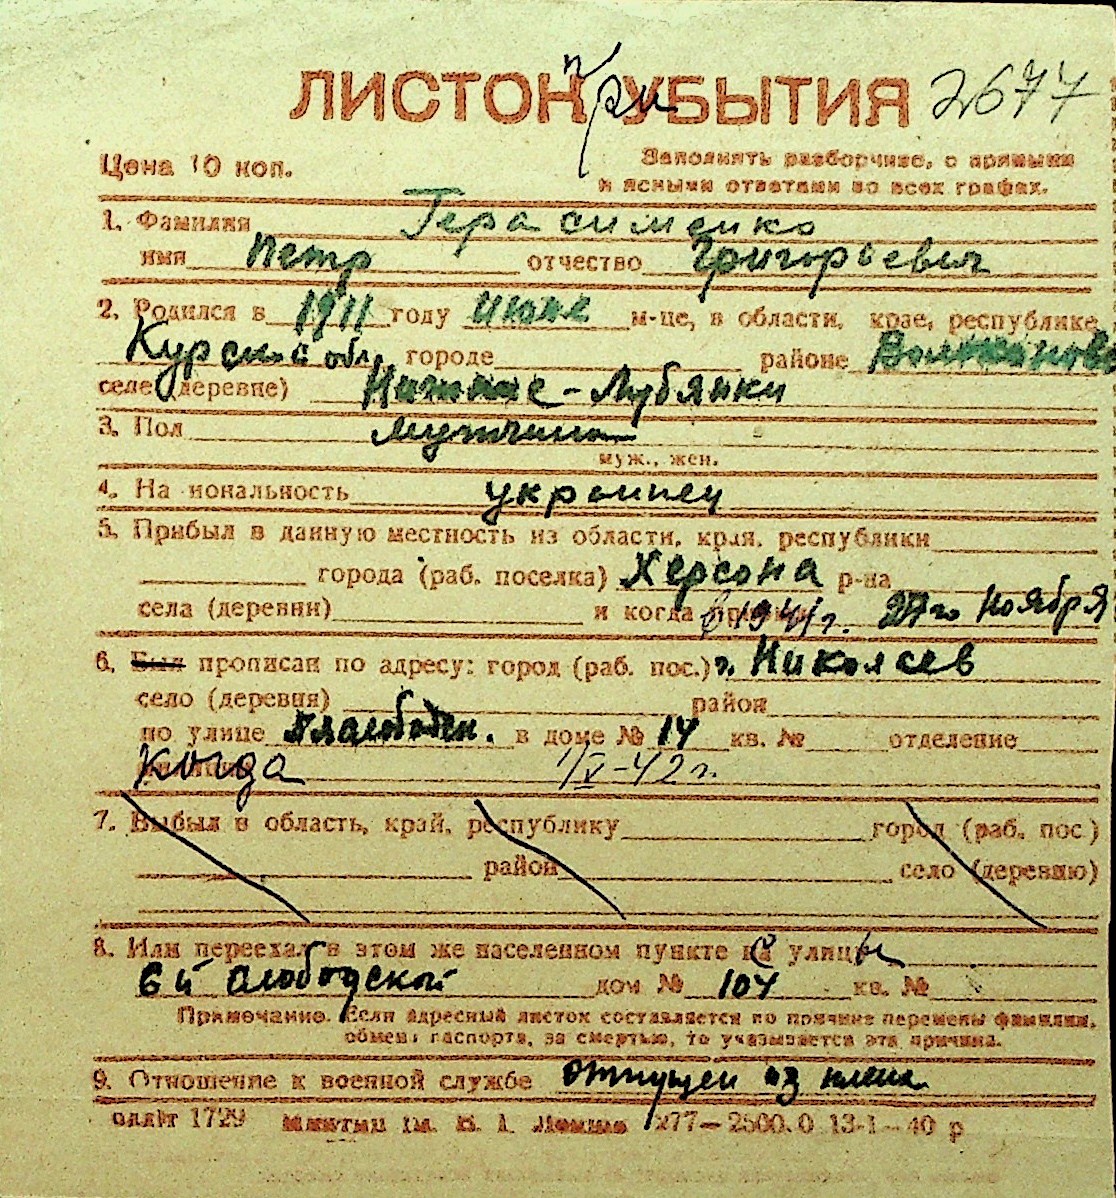 ЛИСТОК при УБЫТИЯ 2677
Цена 10 коп.
Заполнять разборчиво, с прямыми
и ясными ответами во всех графах.
1. Фамилия Герасименко
имя Петр отчество Григорьевич
2. Родился в 1911 году июне м-це, в области, крае, республике
Курской обл. городе районе
селе (деревне) -Лубянки
3. Пол мужчина
муж., жен.
4. Национальность украинец
5. Прибыл в данную местность из области, края, республики
города (раб. поселка) Херсона р-на
села (деревни) и когда 1941 г. 27го Ноября
6. Был прописан по адресу: город (раб. пос.) г. Николаев
село (деревня) район
по улице в доме № 14 кв. № отделение
когда 1/V-42 г.
7. Выбыл в область, край, республику город (раб. пос.)
район село (деревню)
8. Или переехал в этом же населенном пункте с улицы
6й Слободской дом № 104 кв. №
Примечание. Если адресный листок составляется по причине перемены фамилии,
обмена паспорта, за смертью, то указывается эта причина.
9. Отношение к военной службе отпущен из плена
1729 277—2500.0 13-1—40 р